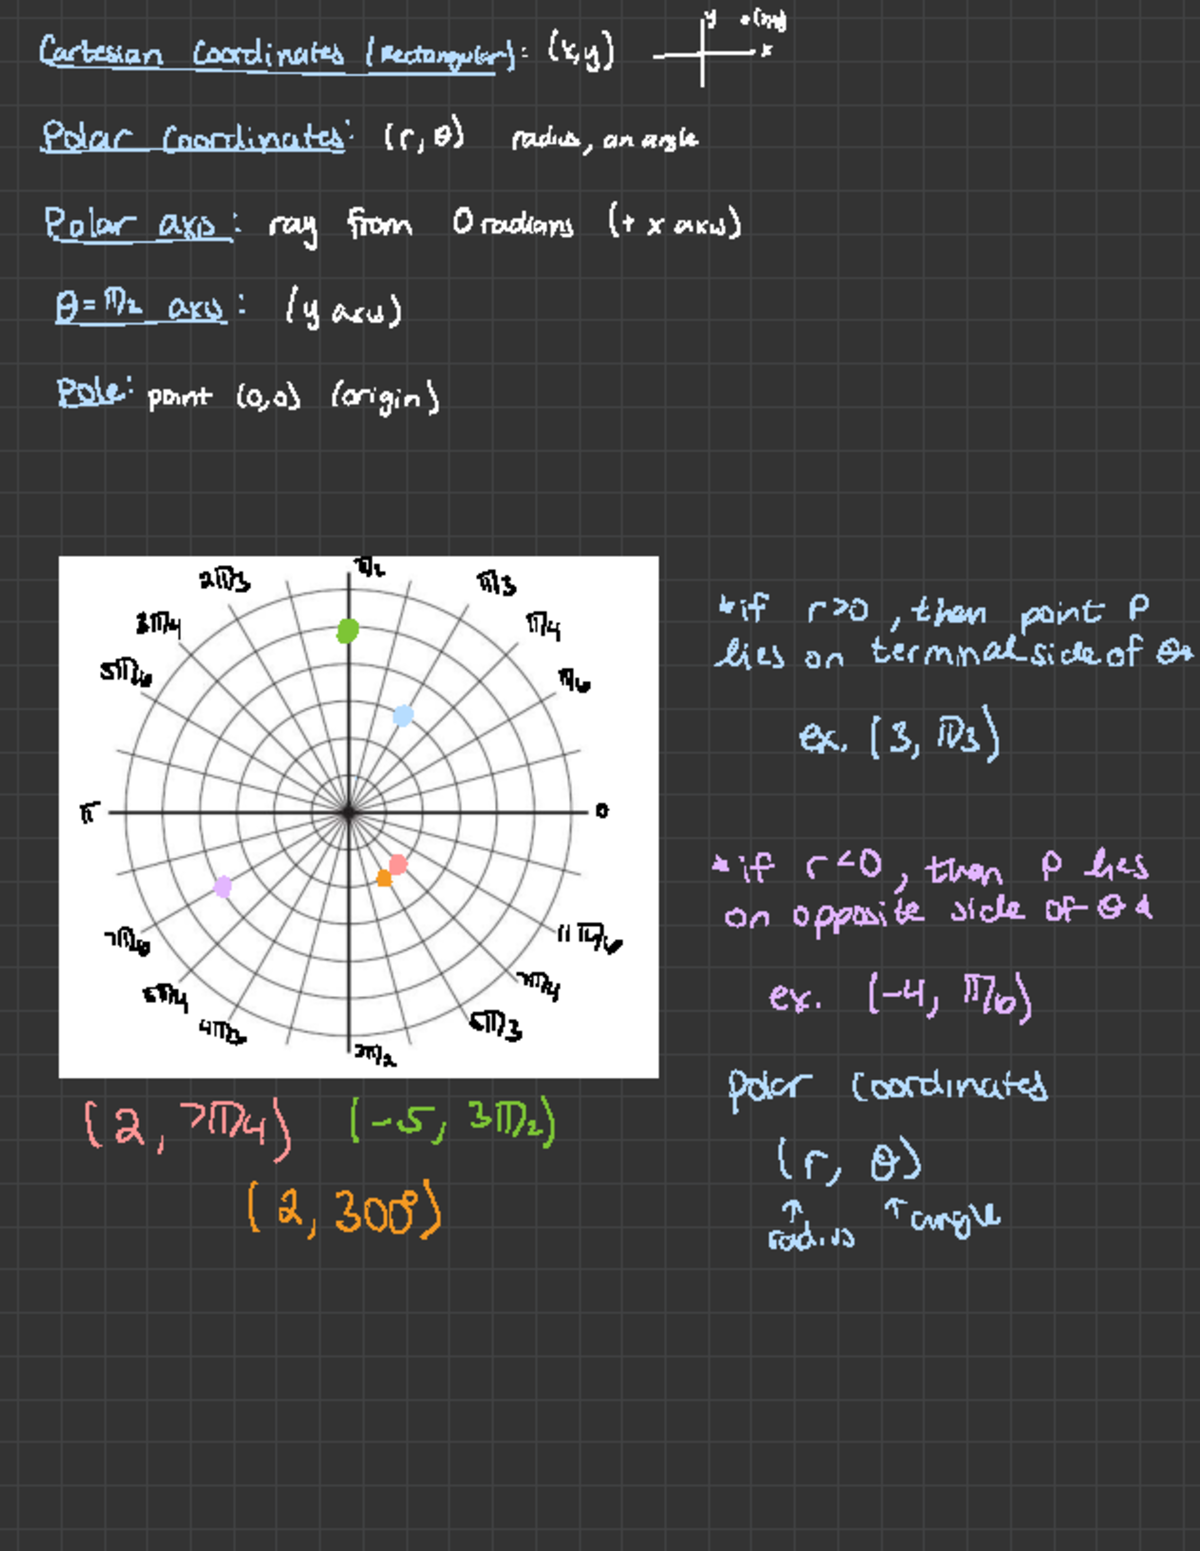 Cartesian Coordinates (Rectangular): (x,y)
y
x
Polar Coordinates: (r, θ) radius, an angle
Polar axis: ray from 0 radians (+ x axis)
θ = π/2 axis: (y axis)
Pole: point (0,0) (origin)
π/2
2π/3
π/3
3π/4
π/4
5π/6
π/6
π
0
7π/6
11π/6
5π/4
7π/4
4π/3
5π/3
3π/2
*if r>0, then point P
lies on terminal side of θ*
ex. (3, π/3)
*if r<0, then P lies
on opposite side of θ*
ex. (-4, π/6)
Polar Coordinates
(r, θ)
↑ ↑ angle
radius
(2, 7π/4) (-5, 3π/2)
(2, 300°)